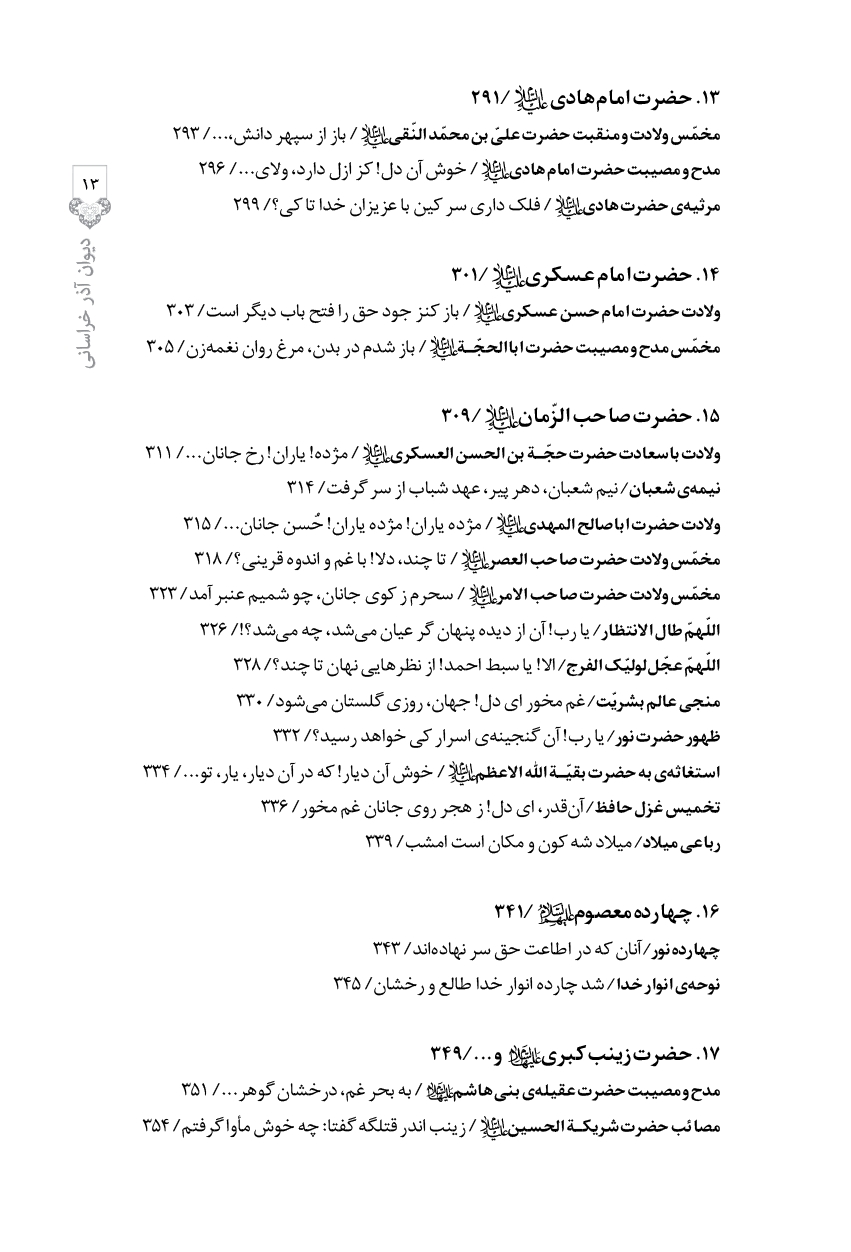 ۱۳. حضرت امام هادی علیه‌السلام /۲۹۱
مخمّس ولادت و منقبت حضرت علیّ بن محمّد النّقی علیه‌السلام / باز از سپهر دانش،.../ ۲۹۳
مدح و مصیبت حضرت امام هادی علیه‌السلام / خوش آن دل! کز ازل دارد، ولای.../ ۲۹۶
مرثیه‌ی حضرت هادی علیه‌السلام / فلک داری سر کین با عزیزان خدا تا کی؟/ ۲۹۹
۱۴. حضرت امام عسکری علیه‌السلام /۳۰۱
ولادت حضرت امام حسن عسکری علیه‌السلام / باز کنز جود حق را فتح باب دیگر است/ ۳۰۳
مخمّس مدح و مصیبت حضرت ابا الحجّـة علیه‌السلام / باز شدم در بدن، مرغ روان نغمه‌زن/ ۳۰۵
۱۵. حضرت صاحب الزّمان علیه‌السلام /۳۰۹
ولادت باسعادت حضرت حجّـة بن الحسن العسکری علیه‌السلام / مژده! یاران! رخ جانان.../ ۳۱۱
نیمه‌ی شعبان/ نیم شعبان، دهر پیر، عهد شباب از سر گرفت/ ۳۱۴
ولادت حضرت اباصالح المهدی علیه‌السلام / مژده یاران! مژده یاران! حُسن جانان.../ ۳۱۵
مخمّس ولادت حضرت صاحب العصر علیه‌السلام / تا چند، دلا! با غم و اندوه قرینی؟/ ۳۱۸
مخمّس ولادت حضرت صاحب الامر علیه‌السلام / سحرم ز کوی جانان، چو شمیم عنبر آمد/ ۳۲۳
اللّهمّ طال الانتظار/ یا رب! آن از دیده پنهان گر عیان می‌شد، چه می‌شد؟!/ ۳۲۶
اللّهمّ عجّل لولیّک الفرج/ الا! یا سبط احمد! از نظرهایی نهان تا چند؟/ ۳۲۸
منجی عالم بشریّت/ غم مخور ای دل! جهان، روزی گلستان می‌شود/ ۳۳۰
ظهور حضرت نور/ یا رب! آن گنجینه‌ی اسرار کی خواهد رسید؟/ ۳۳۲
استغاثه‌ی به حضرت بقیّـة الله الاعظم علیه‌السلام / خوش آن دیار! که در آن دیار، یار، تو.../ ۳۳۴
تخمیس غزل حافظ/ آن‌قدر، ای دل! ز هجر روی جانان غم مخور/ ۳۳۶
رباعی میلاد/ میلاد شه کون و مکان است امشب/ ۳۳۹
۱۶. چهارده معصوم علیهم‌السلام /۳۴۱
چهارده نور/ آنان که در اطاعت حق سر نهاده‌اند/ ۳۴۳
نوحه‌ی انوار خدا/ شد چارده انوار خدا طالع و رخشان/ ۳۴۵
۱۷. حضرت زینب کبری علیها‌السلام و.../۳۴۹
مدح و مصیبت حضرت عقیله‌ی بنی هاشم علیها‌السلام / به بحر غم، درخشان گوهر.../ ۳۵۱
مصائب حضرت شریکـة الحسین علیه‌السلام / زینب اندر قتلگه گفتا: چه خوش مأوا گرفتم/ ۳۵۴
۱۳
دیوان آذر خراسانی